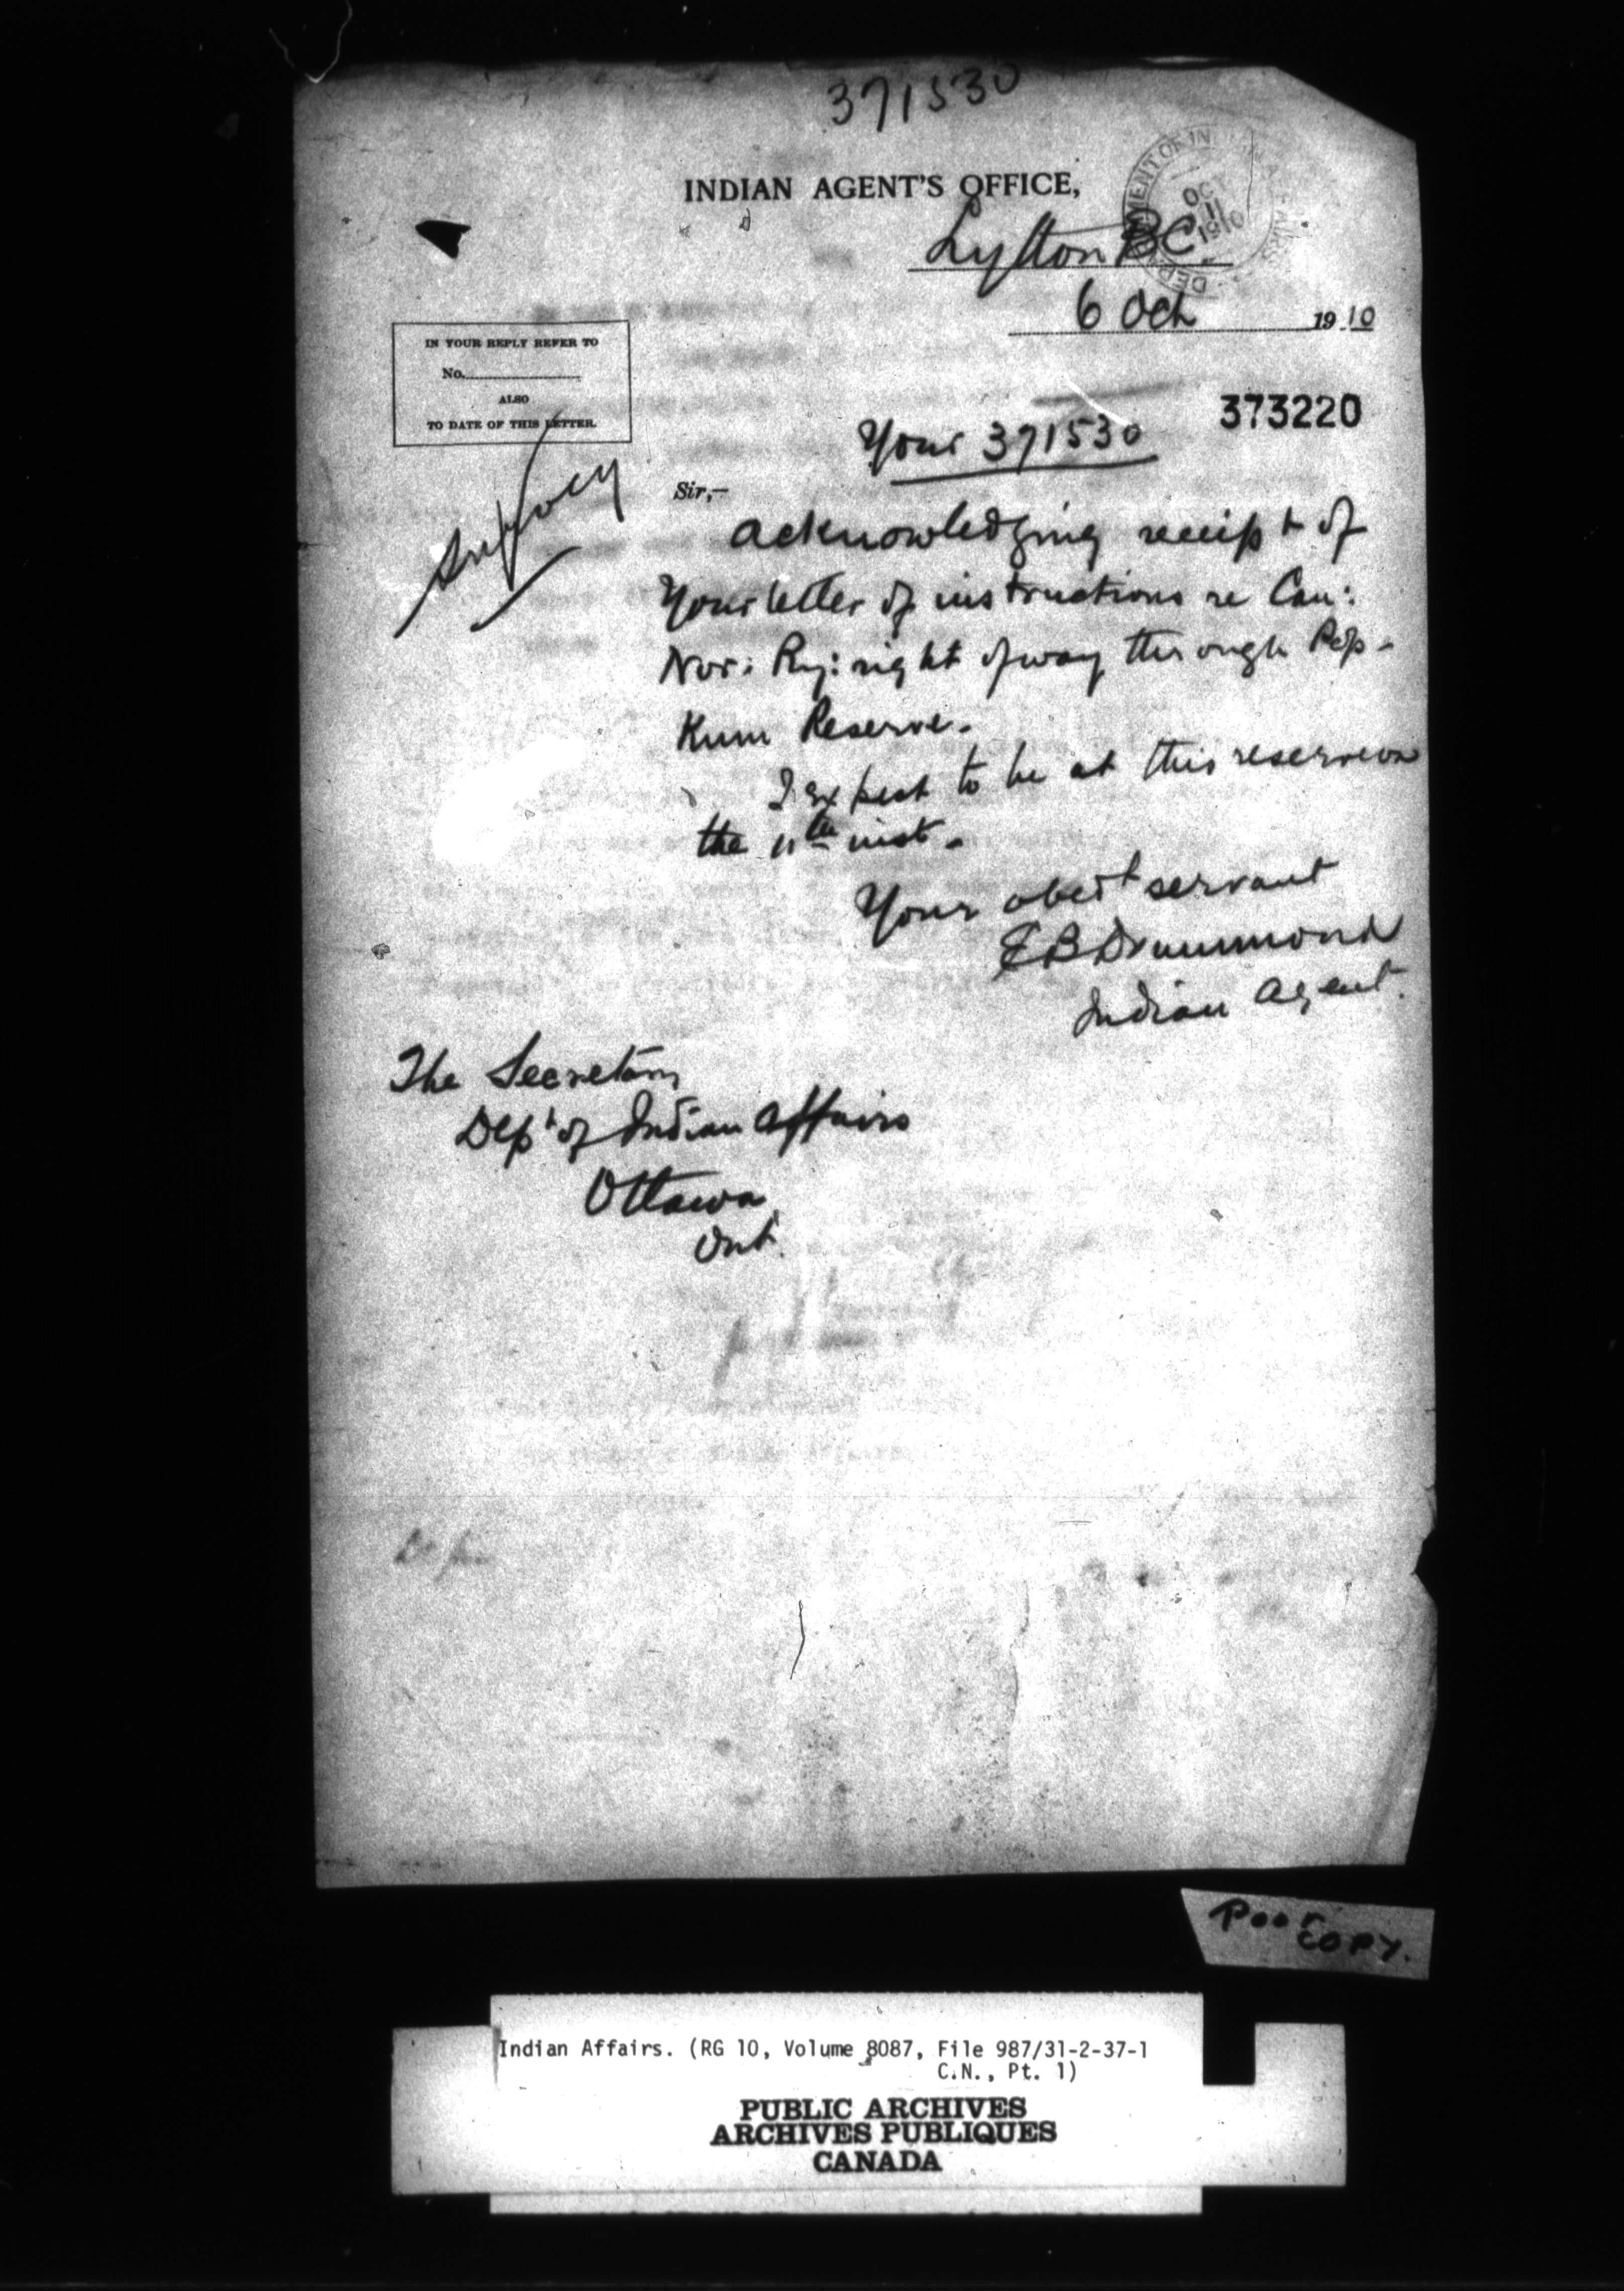 371530
INDIAN AGENT'S OFFICE,
DEPARTMENT OF INDIAN AFFAIRS
OCT 11 1910
Lytton BC.
6 Oct 1910
IN YOUR REPLY REFER TO
No.
ALSO
TO DATE OF THIS LETTER.
373220
Your 371530
Sir,—
acknowledging receipt of
Your letter of instructions re Can:
Nor: Ry: right of way through Pop-
Kum Reserve.
I expect to be at this reserve on
the 11th inst.
Your obedt servant
E B Drummond
Indian Agent.
The Secretary
Dept of Indian Affairs
Ottawa
Ont.
Poor
COPY.
Indian Affairs. (RG 10, Volume 8087, File 987/31-2-37-1
C.N., Pt. 1)
PUBLIC ARCHIVES
ARCHIVES PUBLIQUES
CANADA